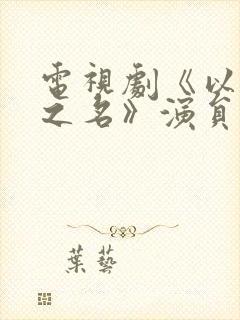 電視劇《以
之名》演員
葉藝